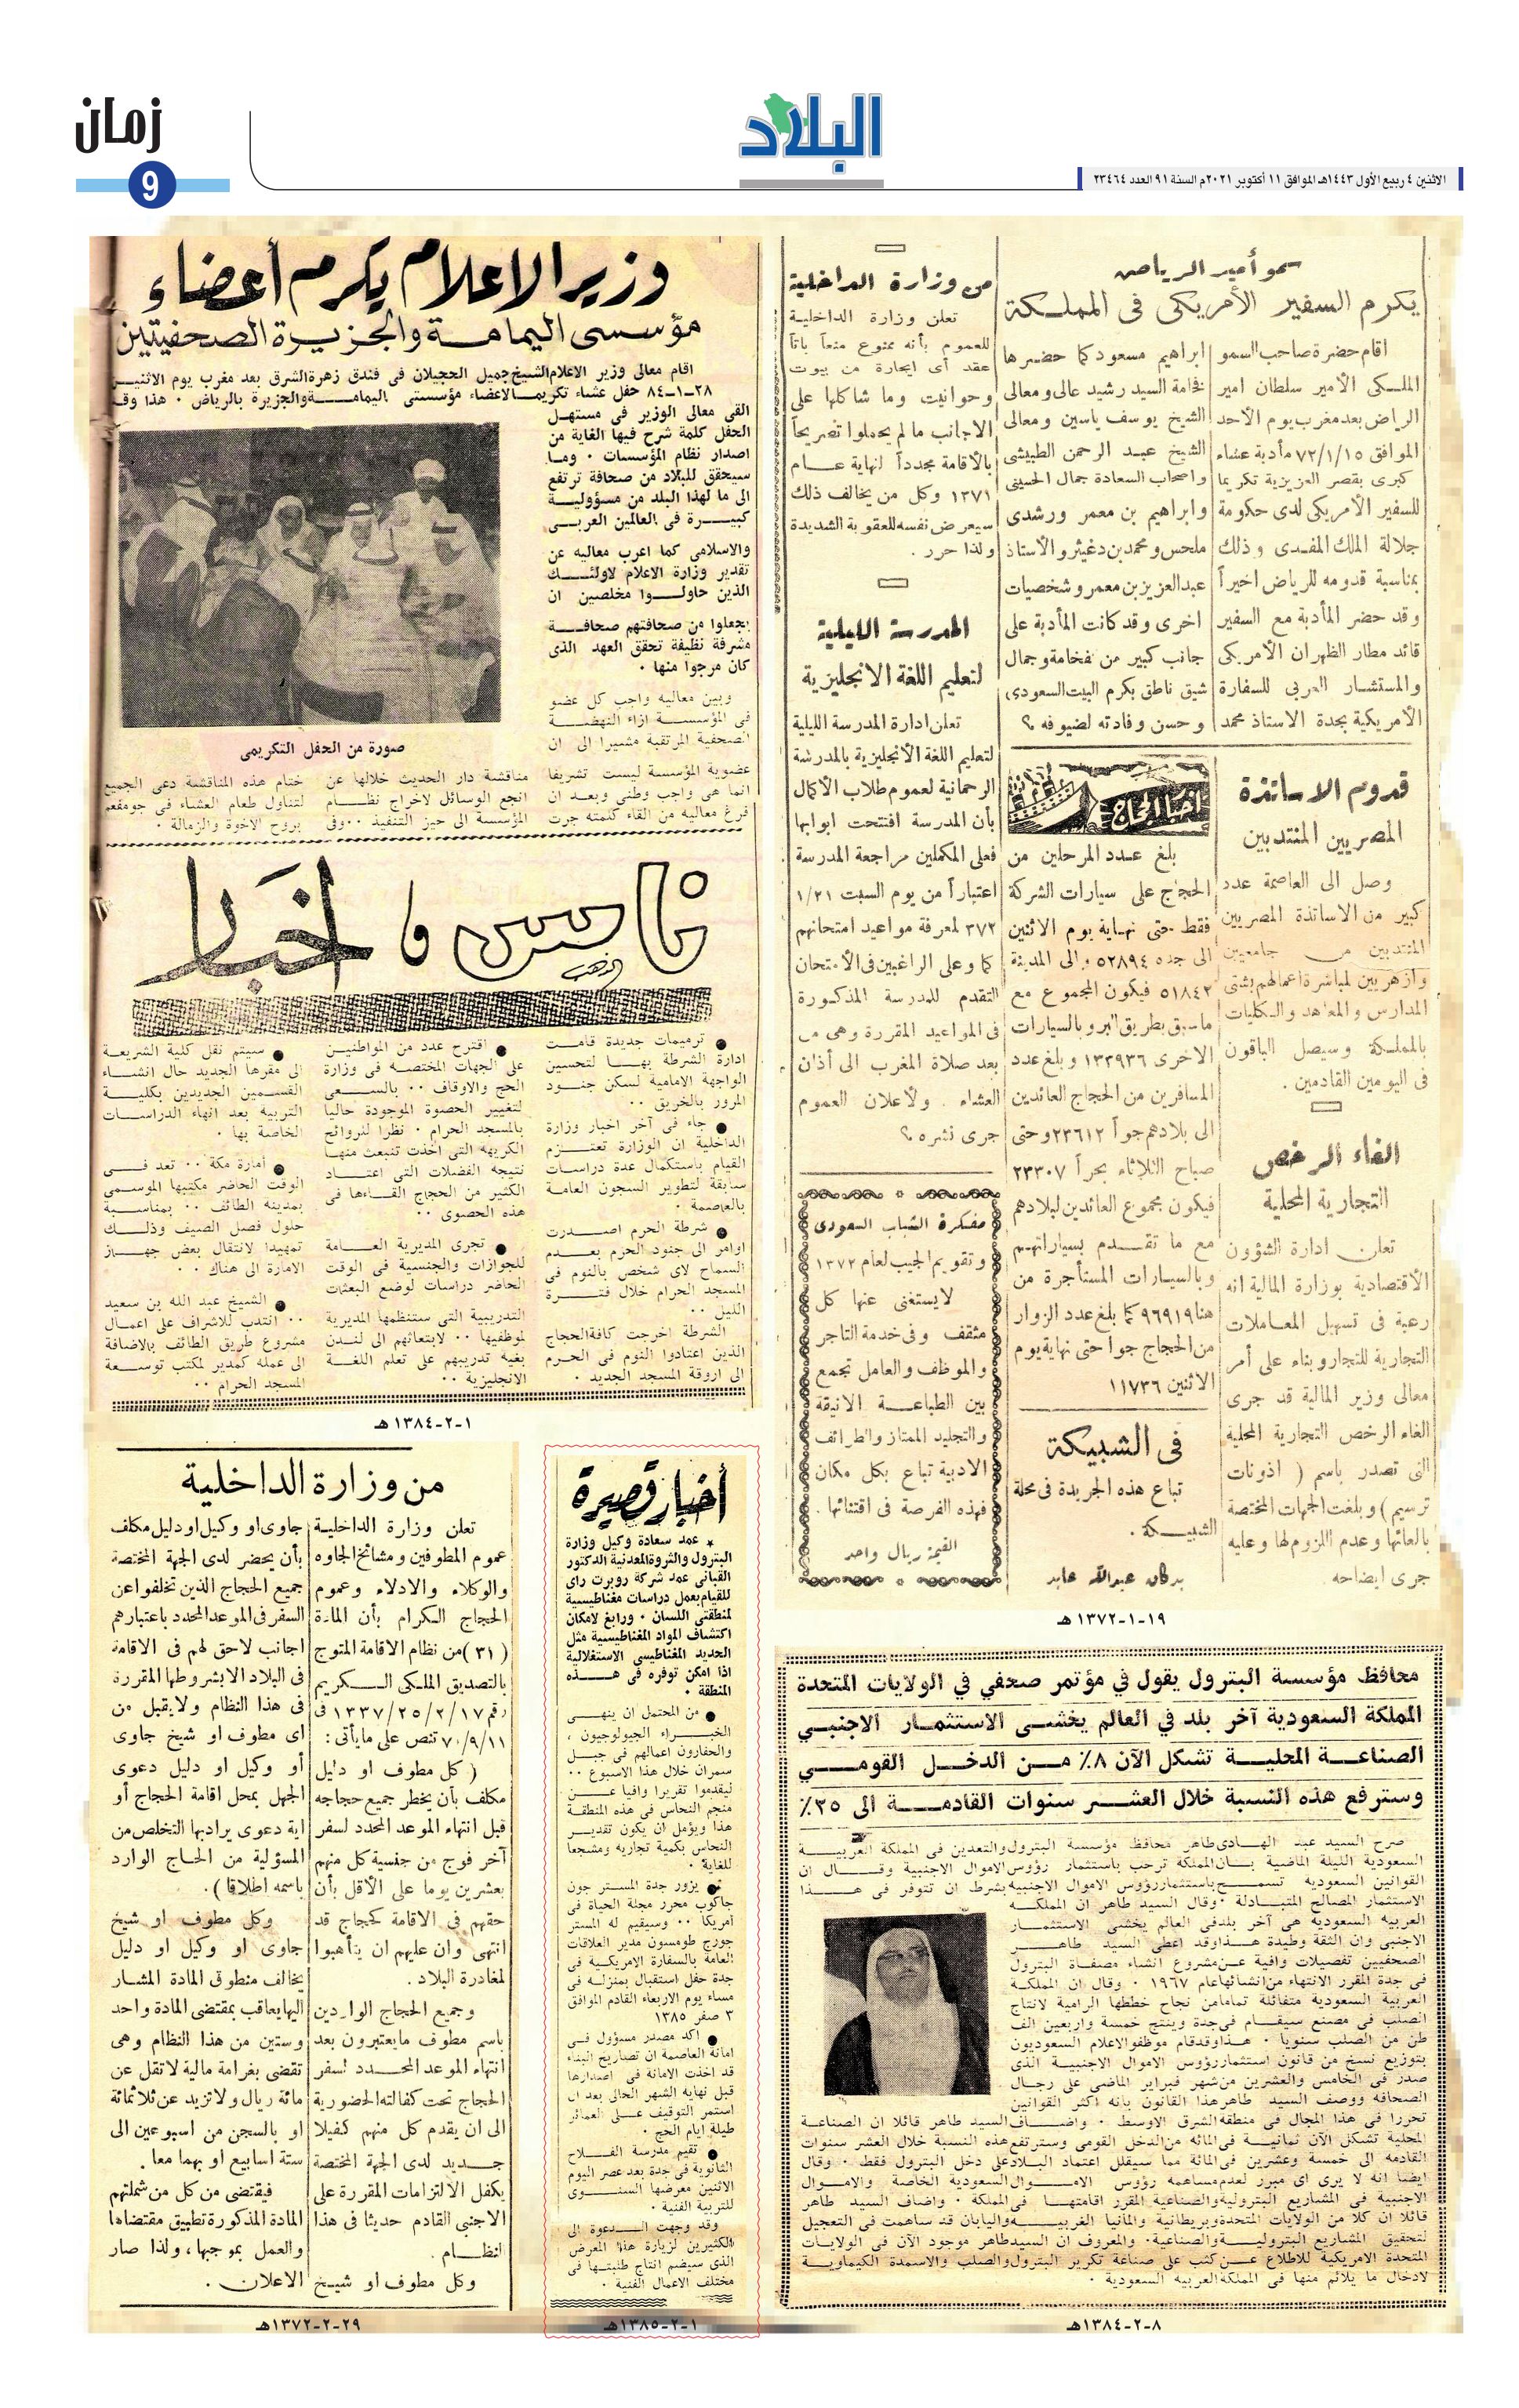 زمان
9
البلاد
الاثنين ٤ ربيع الأول ١٤٤٣هـ الموافق ١١ أكتوبر ٢٠٢١م السنة ٩١ العدد ٢٣٤٦٤
سمو أمير الرياض
يكرم السفير الأمريكى فى المملكة
اقام حضرة صاحب السمو
الملكى الأمير سلطان امير
الرياض بعد مغرب يوم الأحد
الموافق ٧٢/١/١٥ مأدبة عشاء
كبرى بقصر العزيزية تكريما
للسفير الأمريكى لدى حكومة
جلالة الملك المفدى وذلك
بمناسبة قدومه للرياض اخيراً
وقد حضر المأدبة مع السفير
قائد مطار الظهران الأمريكى
والمستشار العربى للسفارة
الأمريكية بجدة الاستاذ محمد
ابراهيم مسعود كما حضرها
فخامة السيد رشيد عالى ومعالى
الشيخ يوسف ياسين ومعالى
الشيخ عبد الرحمن الطبيشى
واصحاب السعادة جمال الحسينى
وابراهيم بن معمر ورشدى
ملحس ومحمد بن دغيثر والأستاذ
عبدالعزيز بن معمر وشخصيات
اخرى وقد كانت المأدبة على
جانب كبير من فخامة وجمال
شيق ناطق بكرم البيت السعودى
وحسن وفادته لضيوفه ؟
قدوم الاساتذة
المصريين المنتدبين
وصل الى العاصمة عدد
كبير من الاساتذة المصريين
المنتدبين من جامعيين
وأزهريين لمباشرة اعمالهم بشتى
المدارس والمعاهد والكليات
بالمملكة وسيصل الباقون
فى اليومين القادمين .
الغاء الرخص
التجارية المحلية
تعلن ادارة الشؤون
الأقتصادية بوزارة المالية انه
رغبة فى تسهيل المعاملات
التجارية للتجار وبناء على أمر
معالى وزير المالية قد جرى
الغاء الرخص التجارية المحلية
التى تصدر باسم ( اذونات
ترسيم ) وبلغت الجهات المختصة
بالغائها وعدم اللزوم لها وعليه
جرى ايضاحه
أخبار الحجاج
بلغ عدد المرحلين من
الحجاج على سيارات الشركة
فقط حتى نهاية يوم الاثنين
الى جده ٥٢٨٩٤ والى المدينة
٥١٨٤٢ فيكون المجموع مع
ماسبق بطريق البر وبالسيارات
الاخرى ١٣٣٩٣٦ وبلغ عدد
المسافرين من الحجاج العائدين
الى بلادهم جواً ٢٣٦١٢ وحتى
صباح الثلاثاء بحراً ٢٣٣٠٧
فيكون مجموع العائدين لبلادهم
مع ما تقدم بسياراتهم
وبالسيارات المستأجرة من
هنا ٩٦٩١٩ كما بلغ عدد الزوار
من الحجاج جوا حتى نهاية يوم
الاثنين ١١٧٣٦
فى الشبيكة
تباع هذه الجريدة فى محلة
الشبيكة .
بدكان عبدالله عابد
من وزارة الداخلية
تعلن وزارة الداخلية
للعموم بأنه ممنوع منعاً باتاً
عقد أى ايجارة من بيوت
وحوانيت وما شاكلها على
الاجانب ما لم يحملوا تصريحاً
بالأقامة مجدداً لنهاية عام
١٣٧١ وكل من يخالف ذلك
سيعرض نفسه للعقوبة الشديدة
ولذا حرر .
المدرسة الليلية
لتعليم اللغة الانجليزية
تعلن ادارة المدرسة الليلية
لتعليم اللغة الأنجليزية بالمدرسة
الرحمانية لعموم طلاب الأكمال
بأن المدرسة افتتحت ابوابها
فعلى المكملين مراجعة المدرسة
اعتباراً من يوم السبت ١/٢١
٣٧٢ لمعرفة مواعيد امتحانهم
كما وعلى الراغبين فى الأمتحان
التقدم للمدرسة المذكورة
فى المواعيد المقررة وهى من
بعد صلاة المغرب الى أذان
العشاء . ولأعلان العموم
جرى نشره ؟
مفكرة الشباب السعودى
وتقويم الجيب لعام ١٣٧٢
لايستغنى عنها كل
مثقف وفى خدمة التاجر
والموظف والعامل تجمع
بين الطباعة الانيقة
والتجليد الممتاز والطرائف
الادبية تباع بكل مكان
فهذه الفرصة فى اقتنائها .
القيمة ريال واحد
١٩-١-١٣٧٢ هـ
وزير الاعلام يكرم أعضاء
مؤسستى اليمامة والجزيرة الصحفيتين
اقام معالى وزير الاعلام الشيخ جميل الحجيلان فى فندق زهرة الشرق بعد مغرب يوم الاثنين
٢٨-١-٨٤ حفل عشاء تكريما لاعضاء مؤسستى اليمامة والجزيرة بالرياض . هذا وقد
القى معالى الوزير فى مستهل
الحفل كلمة شرح فيها الغاية من
اصدار نظام المؤسسات . وما
سيحقق للبلاد من صحافة ترتفع
الى ما لهذا البلد من مسؤولية
كبيرة فى العالمين العربى
والاسلامى كما اعرب معاليه عن
تقدير وزارة الاعلام لاولئك
الذين حاولوا مخلصين ان
يجعلوا من صحافتهم صحافة
مشرفة نظيفة تحقق العهد الذى
كان مرجوا منها .
وبين معاليه واجب كل عضو
فى المؤسسة ازاء النهضة
الصحفية المرتقبة مشيرا الى ان
عضوية المؤسسة ليست تشريفا
انما هى واجب وطنى وبعد ان
فرغ معاليه من القاء كلمته جرت
صورة من الحفل التكريمى
مناقشة دار الحديث خلالها عن
انجع الوسائل لاخراج نظام
المؤسسة الى حيز التنفيذ .. وفى
ختام هذه المناقشة دعى الجميع
لتناول طعام العشاء فى جو مفعم
بروح الاخوة والزمالة .
ناس و اخبار
● ترميمات جديدة قامت
ادارة الشرطة بها لتحسين
الواجهة الامامية لسكن جنود
المرور بالخريق ..
● جاء فى آخر اخبار وزارة
الداخلية ان الوزارة تعتزم
القيام باستكمال عدة دراسات
سابقة لتطوير السجون العامة
بالعاصمة .
● شرطة الحرم اصدرت
اوامر الى جنود الحرم بعدم
السماح لاى شخص بالنوم فى
المسجد الحرام خلال فترة
الليل ..
الشرطة اخرجت كافة الحجاج
الذين اعتادوا النوم فى الحرم
الى اروقة المسجد الجديد .
● اقترح عدد من المواطنين
على الجهات المختصة فى وزارة
الحج والاوقاف .. بالسعى
لتغيير الحصوة الموجودة حاليا
بالمسجد الحرام . نظرا لروائح
الكريهه التى اخذت تنبعث منها
نتيجه الفضلات التى اعتاد
الكثير من الحجاج القاءها فى
هذه الحصوى ..
● تجرى المديرية العامة
للجوازات والجنسية فى الوقت
الحاضر دراسات لوضع البعثات
التدريبية التى ستنظمها المديرية
لموظفيها .. لابتعاثهم الى لندن
بغية تدريبهم على تعلم اللغة
الانجليزية ..
● سيتم نقل كلية الشريعة
الى مقرها الجديد حال انشاء
القسمين الجديدين بكلية
التربية بعد انهاء الدراسات
الخاصة بها .
● امارة مكة .. تعد فى
الوقت الحاضر مكتبها الموسمى
بمدينه الطائف .. بمناسبة
حلول فصل الصيف وذلك
تمهيدا لانتقال بعض جهاز
الامارة الى هناك ..
● الشيخ عبد الله بن سعيد
.. انتدب للاشراف على اعمال
مشروع طريق الطائف بالاضافة
الى عمله كمدير لمكتب توسعة
المسجد الحرام ..
١-٢-١٣٨٤ هـ
أخبار قصيرة
★ عمد سعادة وكيل وزارة
البترول والثروة المعدنية الدكتور
القبانى عمد شركة روبرت راى
للقيام بعمل دراسات مغناطيسية
لمنطقتى اللسان . ورابغ لامكان
اكتشاف المواد المغناطيسية مثل
الحديد المغناطيسى الاستغلالية
اذا امكن توفره فى هذه
المنطقة .
● من المحتمل ان ينهى
الخبراء الجيولوجيون ،
والحفارون اعمالهم فى جبل
سمران خلال هذا الاسبوع ..
ليقدموا تقريرا وافيا عن
منجم النحاس فى هذه المنطقة
هذا ويؤمل ان يكون تقدير
النحاس بكمية تجارية ومشجعا
للغاية .
● يزور جدة المستر جون
جاكوب محرر مجلة الحياة فى
أمريكا .. وسيقيم له المستر
جورج طومسون مدير العلاقات
العامة بالسفارة الامريكية فى
جدة حفل استقبال بمنزله فى
مساء يوم الاربعاء القادم الموافق
٣ صفر ١٣٨٥
● أكد مصدر مسؤول فى
امانة العاصمة ان تصاريح البناء
قد اخذت الامانة فى اصدارها
قبل نهاية الشهر الحالى بعد ان
استمر التوقيف على العمائر
طيلة ايام الحج .
● تقيم مدرسة الفلاح
الثانوية فى جدة بعد عصر اليوم
الاثنين معرضها السنوى
للتربية الفنية .
وقد وجهت الدعوة الى
الكثيرين لزيارة هذا المعرض
الذى سيضم انتاج طلبتها فى
مختلف الاعمال الفنية .
١-٢-١٣٨٥هـ
من وزارة الداخلية
تعلن وزارة الداخلية
عموم المطوفين ومشائخ الجاوه
والوكلاء والادلاء وعموم
الحجاج الكرام بأن المادة
(٣١) من نظام الاقامة المتوج
بالتصديق الملكى الكريم
رقم ١٣٣٧/٢٥/٢/١٧ فى
٧٠/٩/١١ تنص على مايأتى :
( كل مطوف او دليل
مكلف بأن يخطر جميع حجاجه
قبل انتهاء الموعد المحدد لسفر
آخر فوج من جنسية كل منهم
بعشرين يوما على الأقل بأن
حقهم فى الاقامة كحجاج قد
انتهى وان عليهم ان يتأهبوا
لمغادرة البلاد .
وجميع الحجاج الواردين
باسم مطوف مايعتبرون بعد
انتهاء الموعد المحدد لسفر
الحجاج تحت كفالته الحضورية
الى ان يقدم كل منهم كفيلا
جديد لدى الجهة المختصة
يكفل الألتزامات المقررة على
الاجنبى القادم حديثا فى هذا
النظام .
وكل مطوف او شيخ
جاوى او وكيل او دليل مكلف
بأن يحضر لدى الجهة المختصة
جميع الحجاج الذين تخلفوا عن
السفر فى الموعد المحدد باعتبارهم
اجانب لاحق لهم فى الاقامة
فى البلاد الا بشروطها المقررة
فى هذا النظام ولا يقبل من
اى مطوف او شيخ جاوى
أو وكيل او دليل دعوى
الجهل بمحل اقامة الحجاج أو
اية دعوى يراد بها التخلص من
المسؤلية من الحاج الوارد
باسمه اطلاقا ) .
وكل مطوف او شيخ
جاوى او وكيل او دليل
يخالف منطوق المادة المشار
اليها يعاقب بمقتضى المادة واحد
وستين من هذا النظام وهى
تقضى بغرامة مالية لاتقل عن
مائة ريال ولا تزيد عن ثلاثمائة
او بالسجن من اسبوعين الى
ستة اسابيع او بهما معا .
فيقتضى من كل من شملتهم
المادة المذكورة تطبيق مقتضاها
والعمل بموجبها ، ولذا صار
الاعلان .
٢٩-٢-١٣٧٢هـ
محافظ مؤسسة البترول يقول في مؤتمر صحفي في الولايات المتحدة
المملكة السعودية آخر بلد في العالم يخشى الاستثمار الاجنبي
الصناعة المحلية تشكل الآن ٨٪ من الدخل القومي
وسترفع هذه النسبة خلال العشر سنوات القادمة الى ٢٥٪
صرح السيد عبد الهادى طاهر محافظ مؤسسة البترول والتعدين فى المملكة العربية
السعودية الليلة الماضية بان المملكة ترحب باستثمار رؤوس الاموال الاجنبية وقال ان
القوانين السعودية تسمح باستثمار رؤوس الاموال الاجنبيه بشرط ان تتوفر فى هذا
الاستثمار المصالح المتبادلة . وقال السيد طاهر ان المملكة
العربيه السعودية هى آخر بلد فى العالم يخشى الاستثمار
الاجنبى وان الثقة وطيدة هذا وقد اعطى السيد طاهر
الصحفيين تفصيلات وافية عن مشروع انشاء مصفاة البترول
فى جدة المقرر الانتهاء من انشائها عام ١٩٦٧ . وقال ان المملكة
العربية السعودية متفائلة تماما من نجاح خططها الرامية لانتاج
الصلب فى مصنع سيقام فى جدة وينتج خمسة واربعين الف
طن من الصلب سنويا . هذا وقد قام موظفو الاعلام السعوديون
بتوزيع نسخ من قانون استثمار رؤوس الاموال الاجنبية الذى
صدر فى الخامس والعشرين من شهر فبراير الماضى على رجال
الصحافه ووصف السيد طاهر هذا القانون بأنه اكثر القوانين
تحررا فى هذا المجال فى منطقة الشرق الاوسط . واضاف السيد طاهر قائلا ان الصناعة
المحلية تشكل الآن ثمانية فى المائه من الدخل القومى وسترتفع هذه النسبة خلال العشر سنوات
القادمه الى خمسة وعشرين فى المائة مما سيقلل اعتماد البلاد على دخل البترول فقط . وقال
ايضا انه لا يرى اى مبرر لعدم مساهمه رؤوس الاموال السعودية الخاصة والاموال
الاجنبية فى المشاريع البترولية والصناعية المقرر اقامتها فى المملكة . واضاف السيد طاهر
قائلا ان كلا من الولايات المتحدة وبريطانية والمانيا الغربية واليابان قد ساهمت فى التعجيل
لتحقيق المشاريع البترولية والصناعية . والمعروف ان السيد طاهر موجود الآن فى الولايات
المتحدة الامريكية للاطلاع عن كثب على صناعة تكرير البترول والصلب والاسمدة الكيماوية
لادخال ما يلائم منها فى المملكة العربيه السعودية .
٨-٢-١٣٨٤هـ